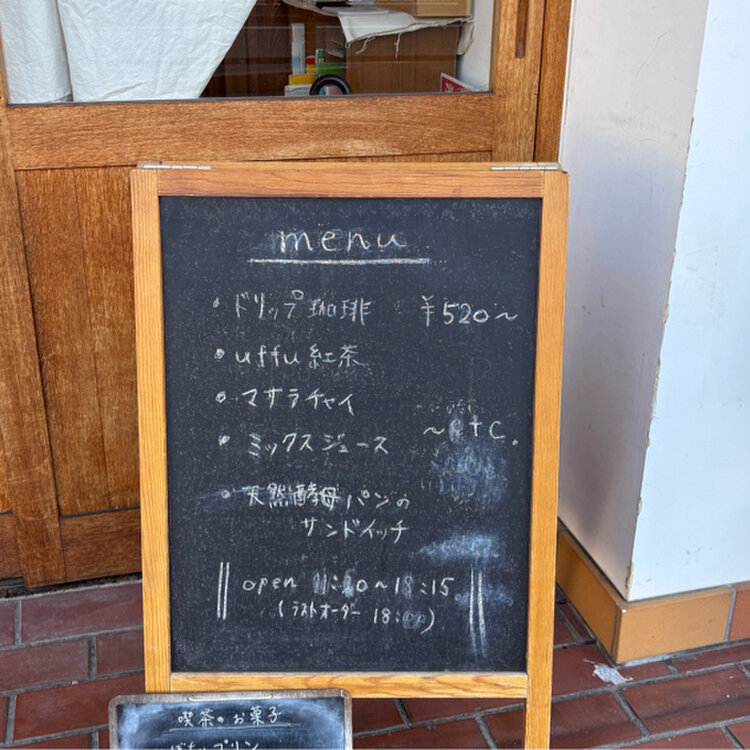 menu
・ドリップ珈琲 ¥520～
・uffu紅茶
・マサラチャイ
～etc.
・ミックスジュース
・天然酵母パンの
サンドイッチ
open ～18:15
(ラストオーダー 18:00)
喫茶のお菓子